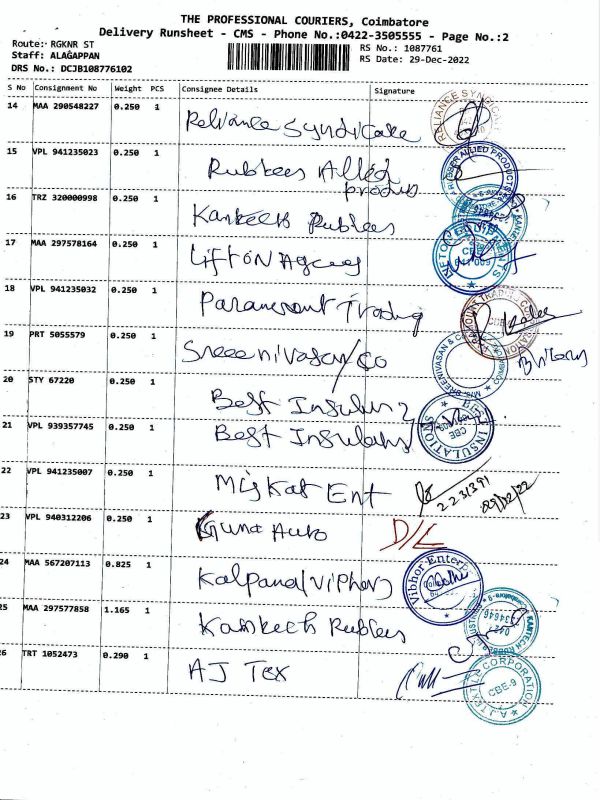 THE PROFESSIONAL COURIERS, Coimbatore
Delivery Runsheet - CMS - Phone No.:0422-3505555 - Page No.:2
Route: RGKNR ST
RS No.: 1087761
Staff: ALAGAPPAN
RS Date: 29-Dec-2022
DRS No.: DCJB108776102
S No Consignment No Weight PCS Consignee Details Signature
14 MAA 290548227 0.250 1 Reliance Syndicate
RELIANCE SYNDICATE
15 VPL 941235023 0.250 1 Rubbers Allied
Produs
RUBBER ALLIED PRODUCTS
16 TRZ 320000998 0.250 1 Kankech Rubbers
17 MAA 297578164 0.250 1 Lifton Agces
18 VPL 941235032 0.250 1 Paramount Trading
19 PRT 5055579 0.250 1 Sreeenivasan/co
M/S. SREENIVASAN & CO
20 STY 67220 0.250 1 Best Insuling
21 VPL 939357745 0.250 1 Best Insulans
BEST INSULATIONS
CBE
22 VPL 941235007 0.250 1 Miskat Ent
2231391
29/12/22
23 VPL 940312206 0.250 1 Guna Auto D/L
24 MAA 567207113 0.825 1 Kalpana (Viphor)
Vibhor Enterp
25 MAA 297577858 1.165 1 Kankech Rubbers
26 TRT 1052473 0.290 1 AJ Tex
A.J.TEXTILE CORPORATION
CBE-9